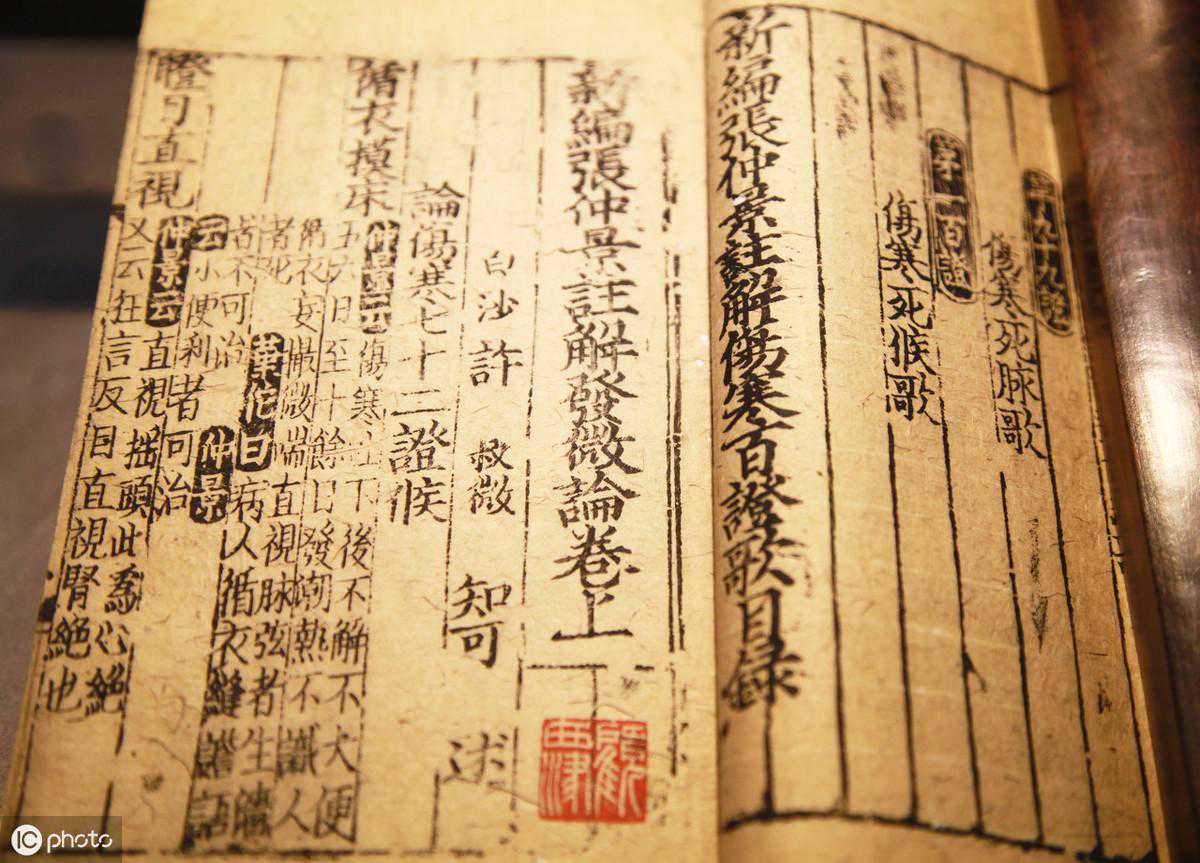 第九十九證
傷寒死脉歌
第一百證
傷寒死候歌
新編張仲景註解傷寒百證歌目録
新編張仲景註解發微論卷上
白沙許 叔微 知可 述
論傷寒七十二證候
循衣摸床
仲景云傷寒吐下後不解不大便
五六日至十餘日發潮熱不識人
循衣妄微喘直視脉弦者生濇
者死華佗曰病人循衣縫譫語
者不可治仲景
云小便利者可治
瞪目直視
仲景云直視揺頭此為心絶
又云狂言反目直視腎絶也
IC photo